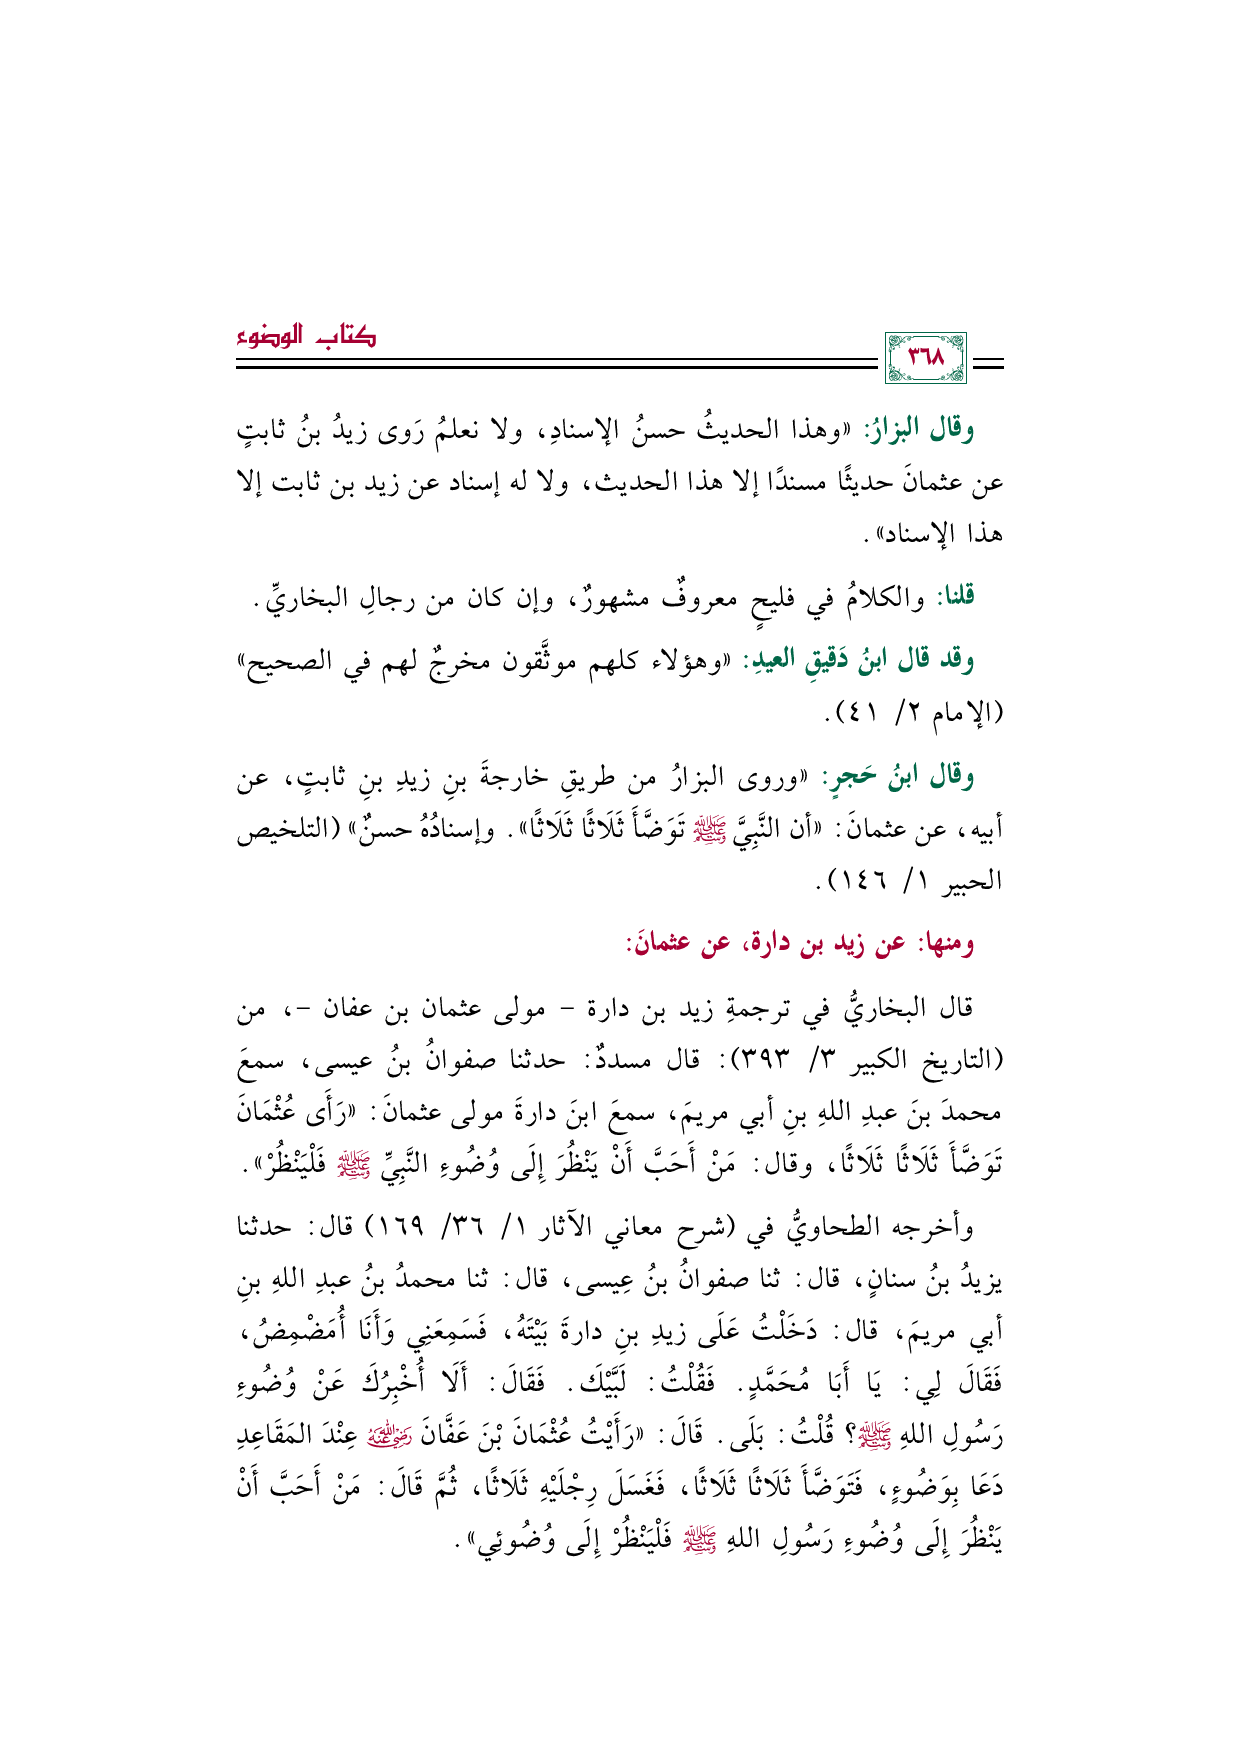 كتاب الوضوء
٣٦٨
وقال البزارُ: «وهذا الحديثُ حسنُ الإسنادِ، ولا نعلمُ رَوى زيدُ بنُ ثابتٍ
عن عثمانَ حديثًا مسندًا إلا هذا الحديث، ولا له إسناد عن زيد بن ثابت إلا
هذا الإسناد».
قلنا: والكلامُ في فليحٍ معروفٌ مشهورٌ، وإن كان من رجالِ البخاريِّ.
وقد قال ابنُ دَقيقِ العيدِ: «وهؤلاء كلهم موثَّقون مخرجٌ لهم في الصحيح»
(الإمام ٢/ ٤١).
وقال ابنُ حَجرٍ: «وروى البزارُ من طريقِ خارجةَ بنِ زيدِ بنِ ثابتٍ، عن
أبيه، عن عثمانَ: «أن النَّبِيَّ ﷺ تَوَضَّأَ ثَلَاثًا ثَلَاثًا». وإسنادُهُ حسنٌ» (التلخيص
الحبير ١/ ١٤٦).
ومنها: عن زيد بن دارة، عن عثمانَ:
قال البخاريُّ في ترجمةِ زيد بن دارة - مولى عثمان بن عفان -، من
(التاريخ الكبير ٣/ ٣٩٣): قال مسددٌ: حدثنا صفوانُ بنُ عيسى، سمعَ
محمدَ بنَ عبدِ اللهِ بنِ أبي مريمَ، سمعَ ابنَ دارةَ مولى عثمانَ: «رَأَى عُثْمَانَ
تَوَضَّأَ ثَلَاثًا ثَلَاثًا، وقال: مَنْ أَحَبَّ أَنْ يَنْظُرَ إِلَى وُضُوءِ النَّبِيِّ ﷺ فَلْيَنْظُرْ».
وأخرجه الطحاويُّ في (شرح معاني الآثار ١/ ٣٦/ ١٦٩) قال: حدثنا
يزيدُ بنُ سنانٍ، قال: ثنا صفوانُ بنُ عِيسى، قال: ثنا محمدُ بنُ عبدِ اللهِ بنِ
أبي مريمَ، قال: دَخَلْتُ عَلَى زيدِ بنِ دارةَ بَيْتَهُ، فَسَمِعَنِي وَأَنَا أُمَضْمِضُ،
فَقَالَ لِي: يَا أَبَا مُحَمَّدٍ. فَقُلْتُ: لَبَّيْكَ. فَقَالَ: أَلَا أُخْبِرُكَ عَنْ وُضُوءِ
رَسُولِ اللهِ ﷺ؟ قُلْتُ: بَلَى. قَالَ: «رَأَيْتُ عُثْمَانَ بْنَ عَفَّانَ رَضِيَ اللَّهُ عَنْهُ عِنْدَ المَقَاعِدِ
دَعَا بِوَضُوءٍ، فَتَوَضَّأَ ثَلَاثًا ثَلَاثًا، فَغَسَلَ رِجْلَيْهِ ثَلَاثًا، ثُمَّ قَالَ: مَنْ أَحَبَّ أَنْ
يَنْظُرَ إِلَى وُضُوءِ رَسُولِ اللهِ ﷺ فَلْيَنْظُرْ إِلَى وُضُوئِي».